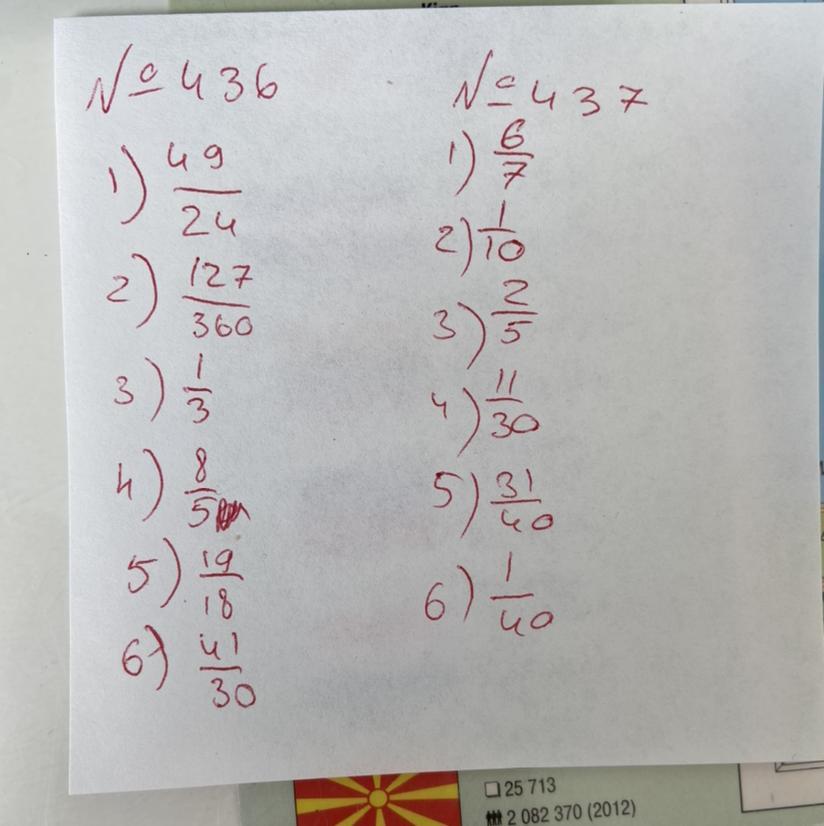 № 436
1) 49/24
2) 127/360
3) 1/3
4) 8/5
5) 19/18
6) 41/30
№ 437
1) 6/7
2) 1/10
3) 2/5
4) 11/30
5) 31/40
6) 1/40
25 713
2 082 370 (2012)